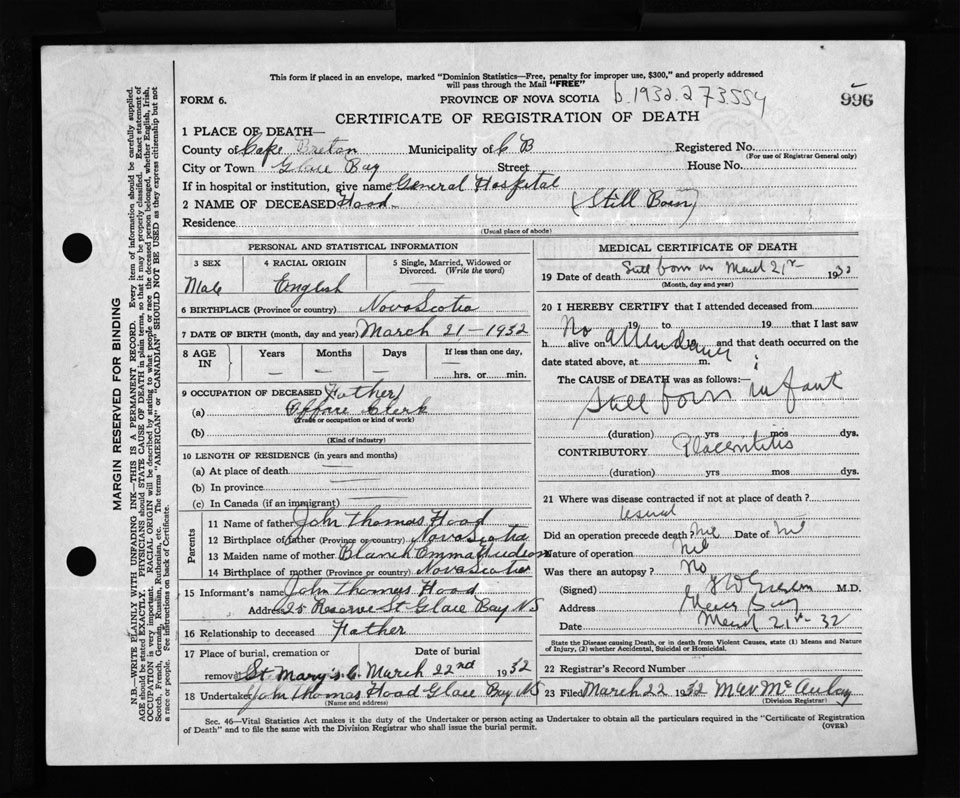 This form if placed in an envelope, marked "Dominion Statistics—Free, penalty for improper use, $300," and properly addressed
will pass through the Mail "FREE"
FORM 6.
PROVINCE OF NOVA SCOTIA b.1932.273554
996
CERTIFICATE OF REGISTRATION OF DEATH
1 PLACE OF DEATH—
County of Cape Breton Municipality of C B Registered No.
(For use of Registrar General only)
City or Town Glace Bay Street House No.
If in hospital or institution, give name General Hospital
2 NAME OF DECEASED Hood (Still Born)
Residence
(Usual place of abode)
PERSONAL AND STATISTICAL INFORMATION
3 SEX 4 RACIAL ORIGIN 5 Single, Married, Widowed or
Divorced. (Write the word)
Male English —
6 BIRTHPLACE (Province or country) Nova Scotia
7 DATE OF BIRTH (month, day and year) March 21 - 1932
8 AGE IN Years Months Days If less than one day,
— — — hrs. or min.
9 OCCUPATION OF DECEASED Father
(a) Office Clerk
(Trade or occupation or kind of work)
(b)
(Kind of industry)
10 LENGTH OF RESIDENCE (in years and months)
(a) At place of death
(b) In province
(c) In Canada (if an immigrant)
Parents
11 Name of father John Thomas Hood
12 Birthplace of father (Province or country) Nova Scotia
13 Maiden name of mother Blanch Emma Hudson
14 Birthplace of mother (Province or country) Nova Scotia
15 Informant's name John Thomas Hood
Address 25 Reserve St Glace Bay NS
16 Relationship to deceased Father
17 Place of burial, cremation or Date of burial
removal St Mary's C. March 22nd 1932
18 Undertaker John Thomas Hood Glace Bay NS
(Name and address)
MEDICAL CERTIFICATE OF DEATH
19 Date of death Still born on March 21st 1932
(Month, day and year)
20 I HEREBY CERTIFY that I attended deceased from
No 19 to 19 that I last saw
h alive on attendance 19 and that death occurred on the
date stated above, at m.
The CAUSE of DEATH was as follows:—
Still born infant
(duration) yrs mos dys.
CONTRIBUTORY Placentitis
(duration) yrs mos dys.
21 Where was disease contracted if not at place of death?
Did an operation precede death? Nil Date of Nil
Nature of operation Nil
Was there an autopsy? No
(Signed) M.D.
Address Glace Bay
Date March 21st - 32
State the Disease causing Death, or in death from Violent Causes, state (1) Means and Nature
of Injury, (2) whether Accidental, Suicidal or Homicidal.
22 Registrar's Record Number
23 Filed March 22 1932 McAulay
(Division Registrar)
Sec. 46—Vital Statistics Act makes it the duty of the Undertaker or person acting as Undertaker to obtain all the particulars required in the "Certificate of Registration
of Death" and to file the same with the Division Registrar who shall issue the burial permit.
(OVER)
MARGIN RESERVED FOR BINDING
N.B.—WRITE PLAINLY WITH UNFADING INK—THIS IS A PERMANENT RECORD. Every item of information should be carefully supplied.
AGE should be stated EXACTLY. PHYSICIANS should STATE CAUSE OF DEATH in plain terms, so that it may be properly classified. Exact statement of
OCCUPATION is very important. RACIAL ORIGIN will be described by stating to what people or race the deceased person belonged, whether English, Irish,
Scotch, French, German, Russian, Ruthenian, etc. The terms "AMERICAN" or "CANADIAN" SHOULD NOT BE USED as they express citizenship but not
a race or people. See instructions on back of Certificate.